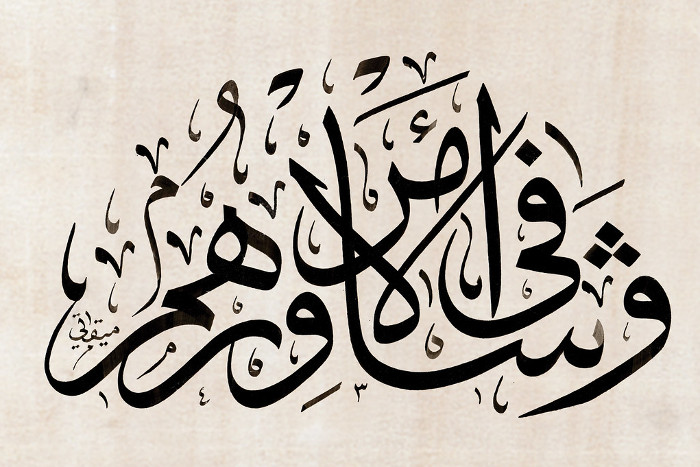 وَشَاوِرْهُمْ فِي الْأَمْرِ
ميقاتي